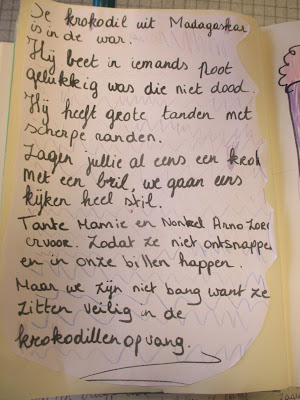 De krokodil uit Madagaskar
is in de war.
Hij beet in iemands poot
gelukkig was die niet dood.
Hij heeft grote tanden met
scherpe randen.
Zagen jullie al eens een krok
met een bril, we gaan eens
kijken heel stil.
Tante Mamie en Nonkel Arno zorgen
ervoor. Zodat ze niet ontsnappen
en in onze billen happen.
Maar we zijn niet bang want ze
zitten veilig in de
krokodillenopvang.